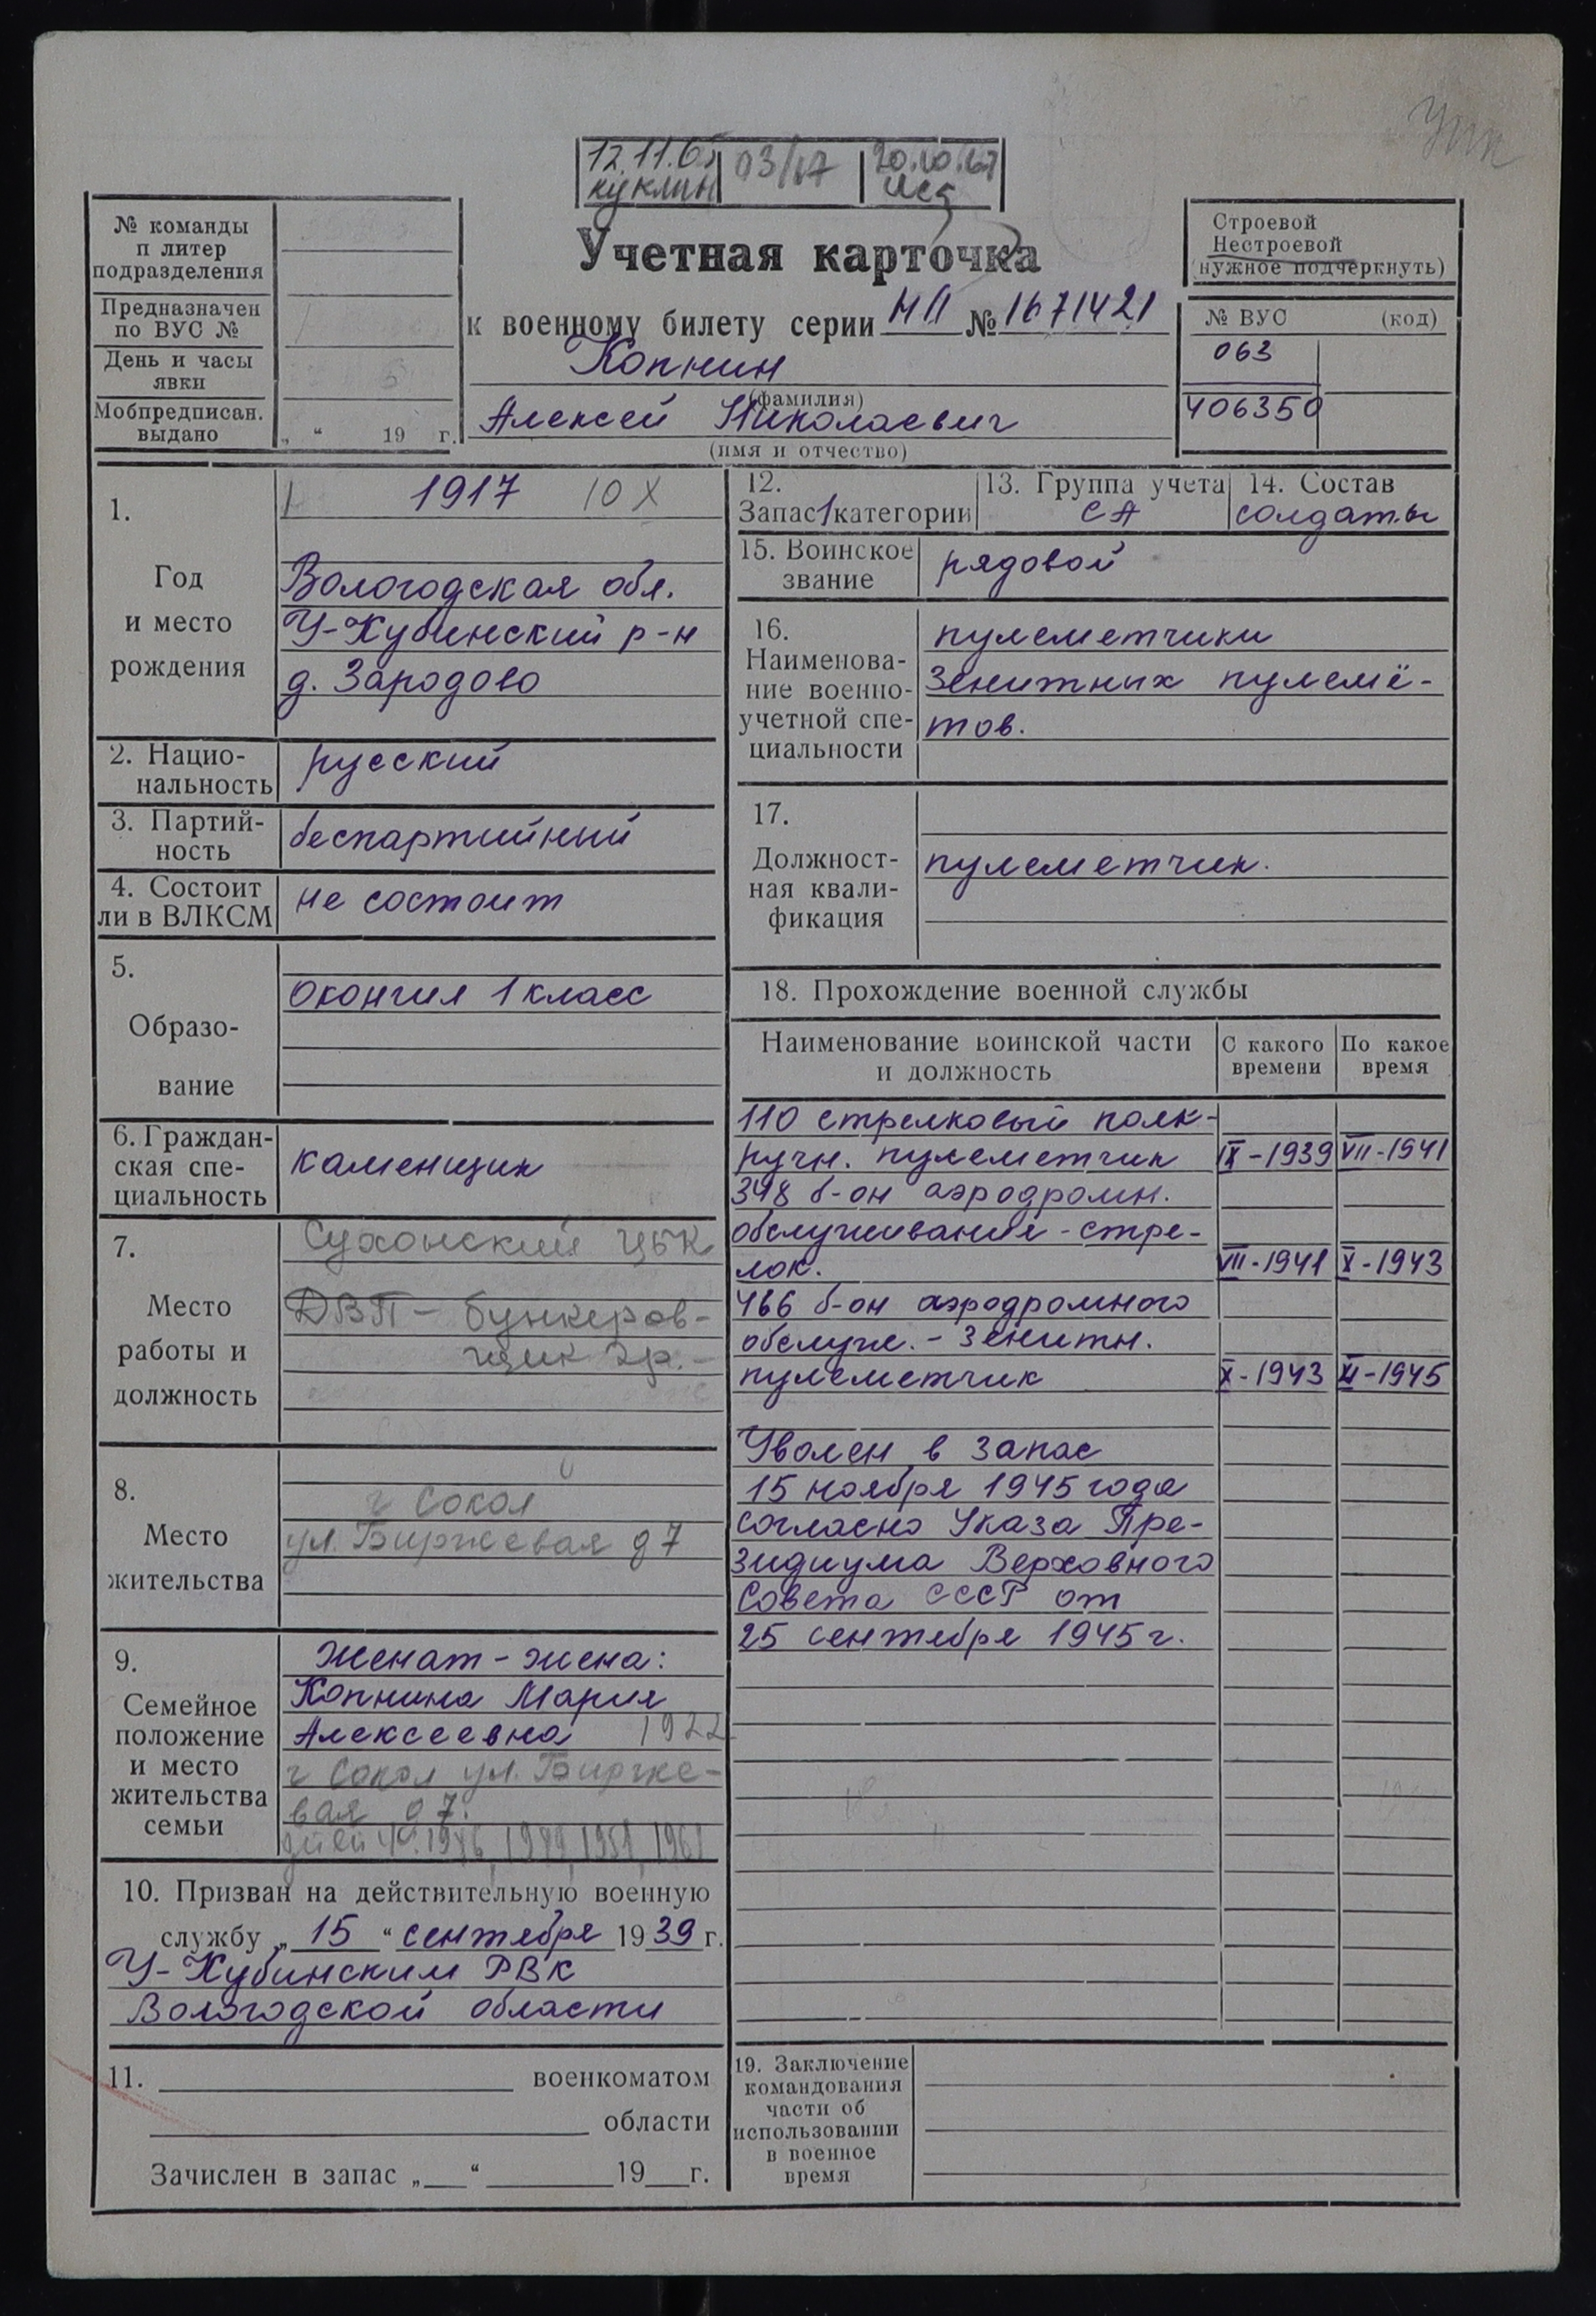 12.11.65 03/17 20.10.67
куклин
№ команды
п литер
подразделения
Предназначен
по ВУС №
День и часы
явки
Мобпредписан.
выдано „ “ 19 г.
Учетная карточка
к военному билету серии НП № 1671421
Копнин
(фамилия)
Алексей Николаевич
(имя и отчество)
Строевой
Нестроевой
(нужное подчеркнуть)
№ ВУС (код)
063
406350
1.
Год
и место
рождения
1917 10 X
Вологодская обл.
У-Кубинский р-н
д. Зародово
2. Нацио-
нальность
русский
3. Партий-
ность
беспартийный
4. Состоит
ли в ВЛКСМ
не состоит
5.
Образо-
вание
Окончил 1 класс
6. Граждан-
ская спе-
циальность
каменщик
7.
Место
работы и
должность
Сухонский ЦБК
ДВП - бункеров-
щик 2р.-
8.
Место
жительства
г Сокол
ул. Биржевая д 7
9.
Семейное
положение
и место
жительства
семьи
Женат - жена:
Копнина Мария
Алексеевна 1922
г Сокол ул. Бирже-
вая д 7.
1946, 1949, 1951, 1961
10. Призван на действительную военную
службу „15“ сентября 1939 г.
У-Кубинским РВК
Вологодской области
11. военкоматом
области
Зачислен в запас „ “ 19 г.
12.
Запас 1 категории
13. Группа учета
СА
14. Состав
солдаты
15. Воинское
звание
рядовой
16.
Наименова-
ние военно-
учетной спе-
циальности
пулеметчики
зенитных пулемё-
тов.
17.
Должност-
ная квали-
фикация
пулеметчик.
18. Прохождение военной службы
Наименование воинской части
и должность
С какого
времени
По какое
время
110 стрелковый полк-
ручн. пулеметчик IX-1939 VII-1941
348 б-он аэродромн.
обслуживания - стре-
лок. VII-1941 X-1943
466 б-он аэродромного
обслуж. - зенитн.
пулеметчик X-1943 XI-1945
Уволен в запас
15 ноября 1945 года
согласно Указа Пре-
зидиума Верховного
Совета СССР от
25 сентября 1945 г.
19. Заключение
командования
части об
использовании
в военное
время